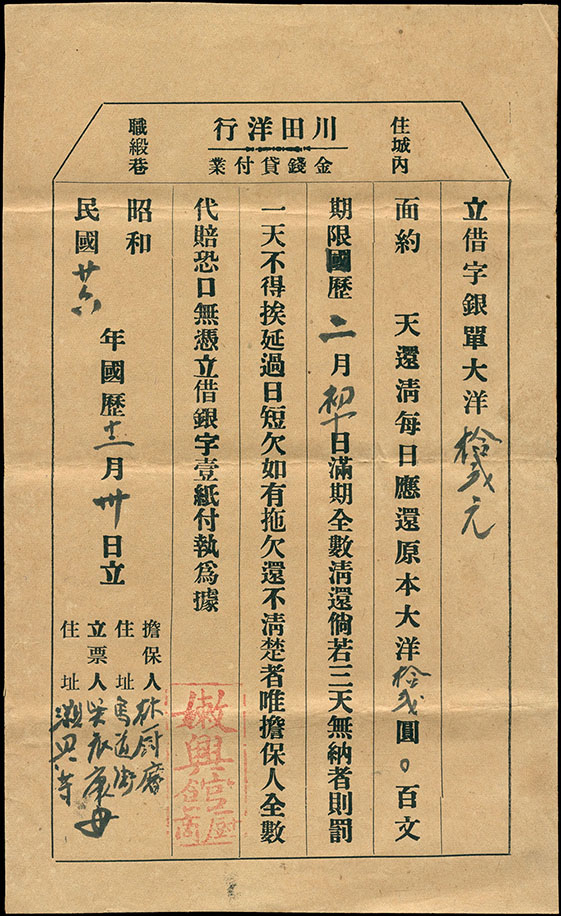 川田洋行
金錢貸付業
住城內
職緞巷
立借字銀單大洋拾弍元
面約 天還清每日應還原本大洋拾弍圓〇百文
期限國歷二月初十日滿期全數清還倘若三天無納者則罰
一天不得挨延過日短欠如有拖欠還不清楚者唯擔保人全數
代賠恐口無憑立借銀字壹紙付執爲據
昭和
民國廿六年國歷十二月卅日立
擔保人林
住址
立票人吳
住址
興館